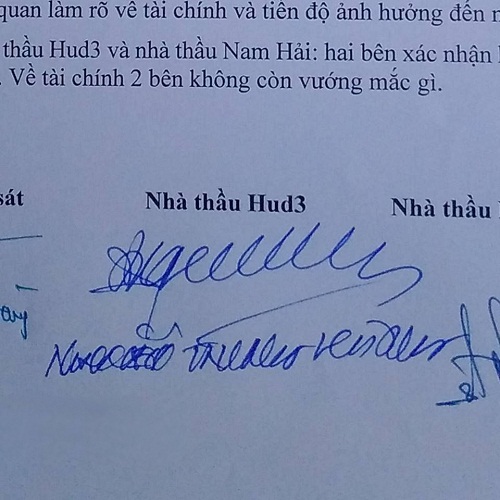 quan làm rõ về tài chính và tiến độ ảnh hưởng đến
thầu Hud3 và nhà thầu Nam Hải: hai bên xác nhận
. Về tài chính 2 bên không còn vướng mắc gì.
sát Nhà thầu Hud3 Nhà thầu